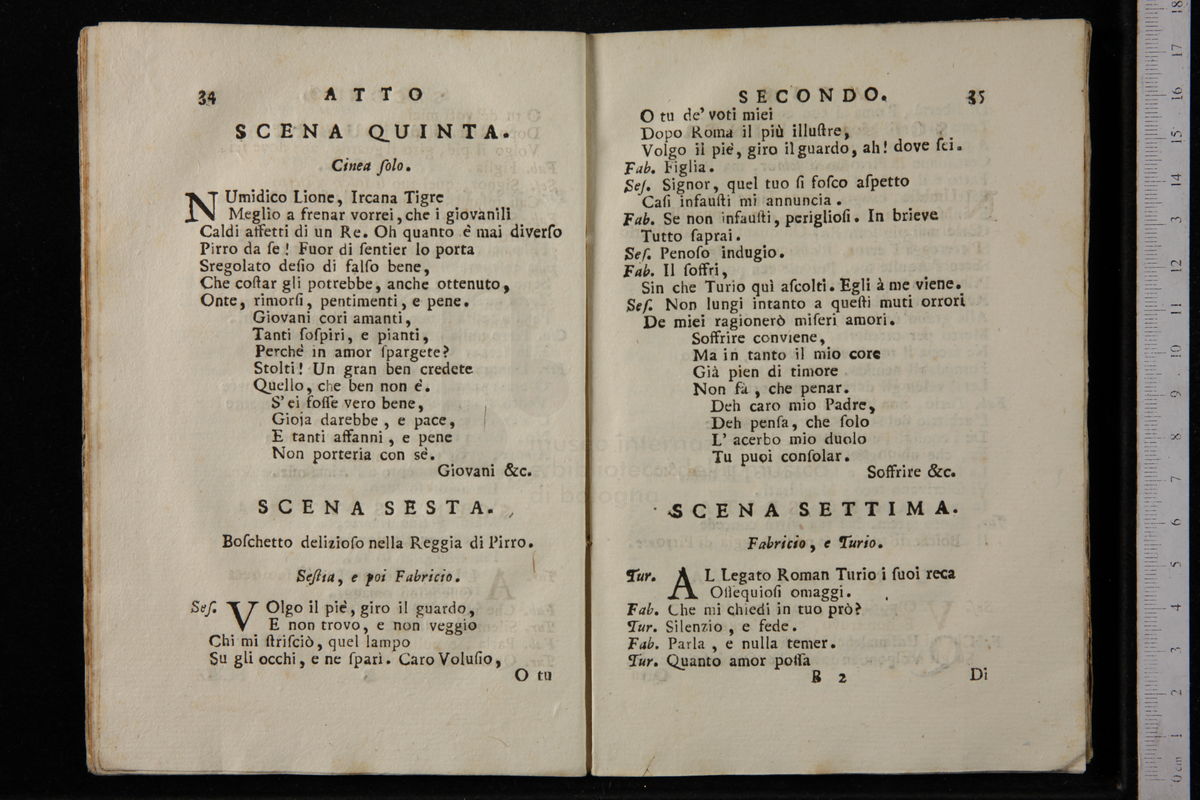 34 ATTO
SCENA QUINTA.
Cinea ſolo.
NUmidico Lione, Ircana Tigre
Meglio a frenar vorrei, che i giovanili
Caldi affetti di un Re. Oh quanto è mai diverſo
Pirro da ſe! Fuor di ſentier lo porta
Sregolato deſio di falſo bene,
Che coſtar gli potrebbe, anche ottenuto,
Onte, rimorſi, pentimenti, e pene.
Giovani cori amanti,
Tanti ſoſpiri, e pianti,
Perchè in amor ſpargete?
Stolti! Un gran ben credete
Quello, che ben non è.
S' ei foſſe vero bene,
Gioja darebbe, e pace,
E tanti affanni, e pene
Non porteria con sè.
Giovani &c.
SCENA SESTA.
Boſchetto delizioſo nella Reggia di Pirro.
Seſtia, e poi Fabricio.
Seſ. VOlgo il piè, giro il guardo,
E non trovo, e non veggio
Chi mi ſtriſciò, quel lampo
Su gli occhi, e ne ſparì. Caro Voluſio,
O tu
SECONDO. 35
O tu de' voti miei
Dopo Roma il più illuſtre,
Volgo il piè, giro il guardo, ah! dove ſei.
Fab. Figlia.
Seſ. Signor, quel tuo ſi foſco aſpetto
Caſi infauſti mi annuncia.
Fab. Se non infauſti, periglioſi. In brieve
Tutto ſaprai.
Seſ. Penoſo indugio.
Fab. Il ſoffri,
Sin che Turio quì aſcolti. Egli à me viene.
Seſ. Non lungi intanto a queſti muti orrori
De miei ragionerò miſeri amori.
Soffrire conviene,
Ma in tanto il mio core
Già pien di timore
Non fà, che penar.
Deh caro mio Padre,
Deh penſa, che ſolo
L' acerbo mio duolo
Tu puoi conſolar.
Soffrire &c.
SCENA SETTIMA.
Fabricio, e Turio.
Tur. AL Legato Roman Turio i ſuoi reca
Oſſequioſi omaggi.
Fab. Che mi chiedi in tuo prò?
Tur. Silenzio, e fede.
Fab. Parla, e nulla temer.
Tur. Quanto amor poſſa
B 2 Di
museo internazionale
e biblioteca della musica
di bologna
0 cm 1 2 3 4 5 6 7 8 9 10 11 12 13 14 15 16 17 18